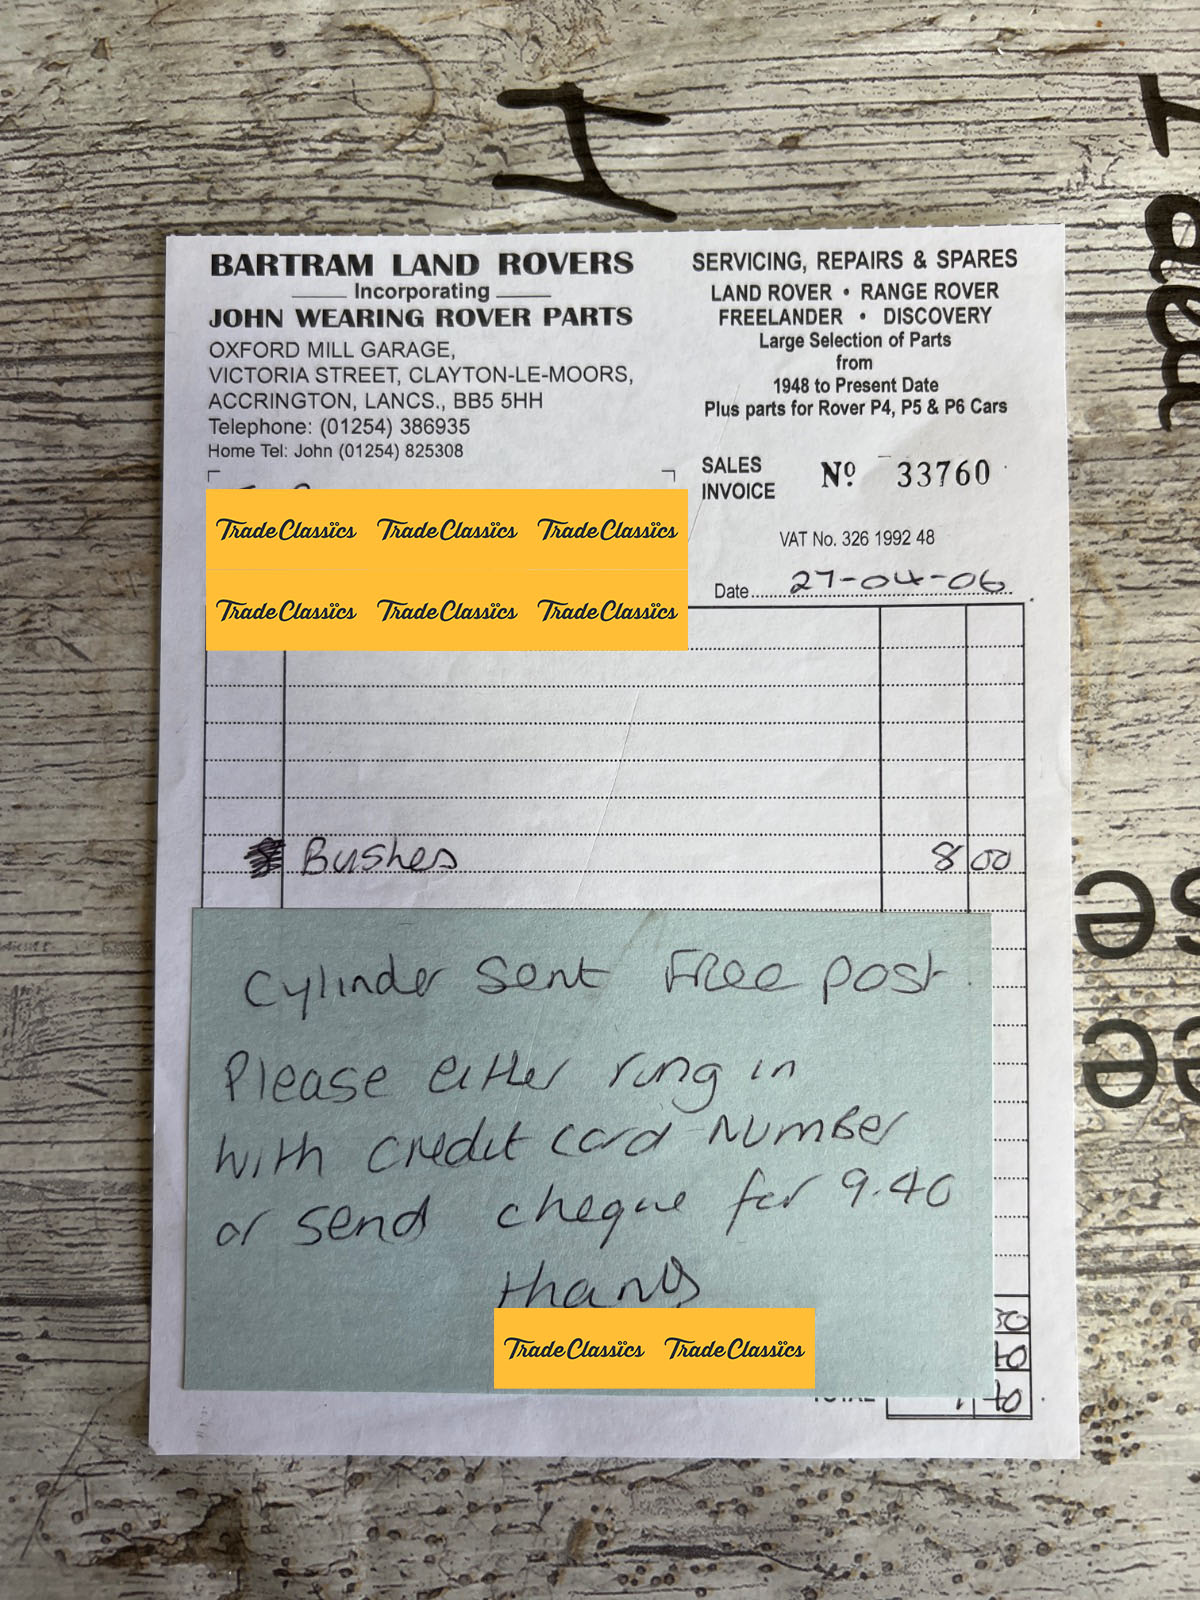 BARTRAM LAND ROVERS
Incorporating
JOHN WEARING ROVER PARTS
OXFORD MILL GARAGE,
VICTORIA STREET, CLAYTON-LE-MOORS,
ACCRINGTON, LANCS., BB5 5HH
Telephone: (01254) 386935
Home Tel: John (01254) 825308
SERVICING, REPAIRS & SPARES
LAND ROVER • RANGE ROVER
FREELANDER • DISCOVERY
Large Selection of Parts
from
1948 to Present Date
Plus parts for Rover P4, P5 & P6 Cars
SALES
INVOICE
Nº 33760
VAT No. 326 1992 48
Date 27-04-06
Trade Classics Trade Classics Trade Classics
Trade Classics Trade Classics Trade Classics
Bushes 8 00
Cylinder Sent Free post
Please either ring in
with credit card number
or send cheque for 9.40
thanks
Trade Classics Trade Classics
40
TOTAL 40